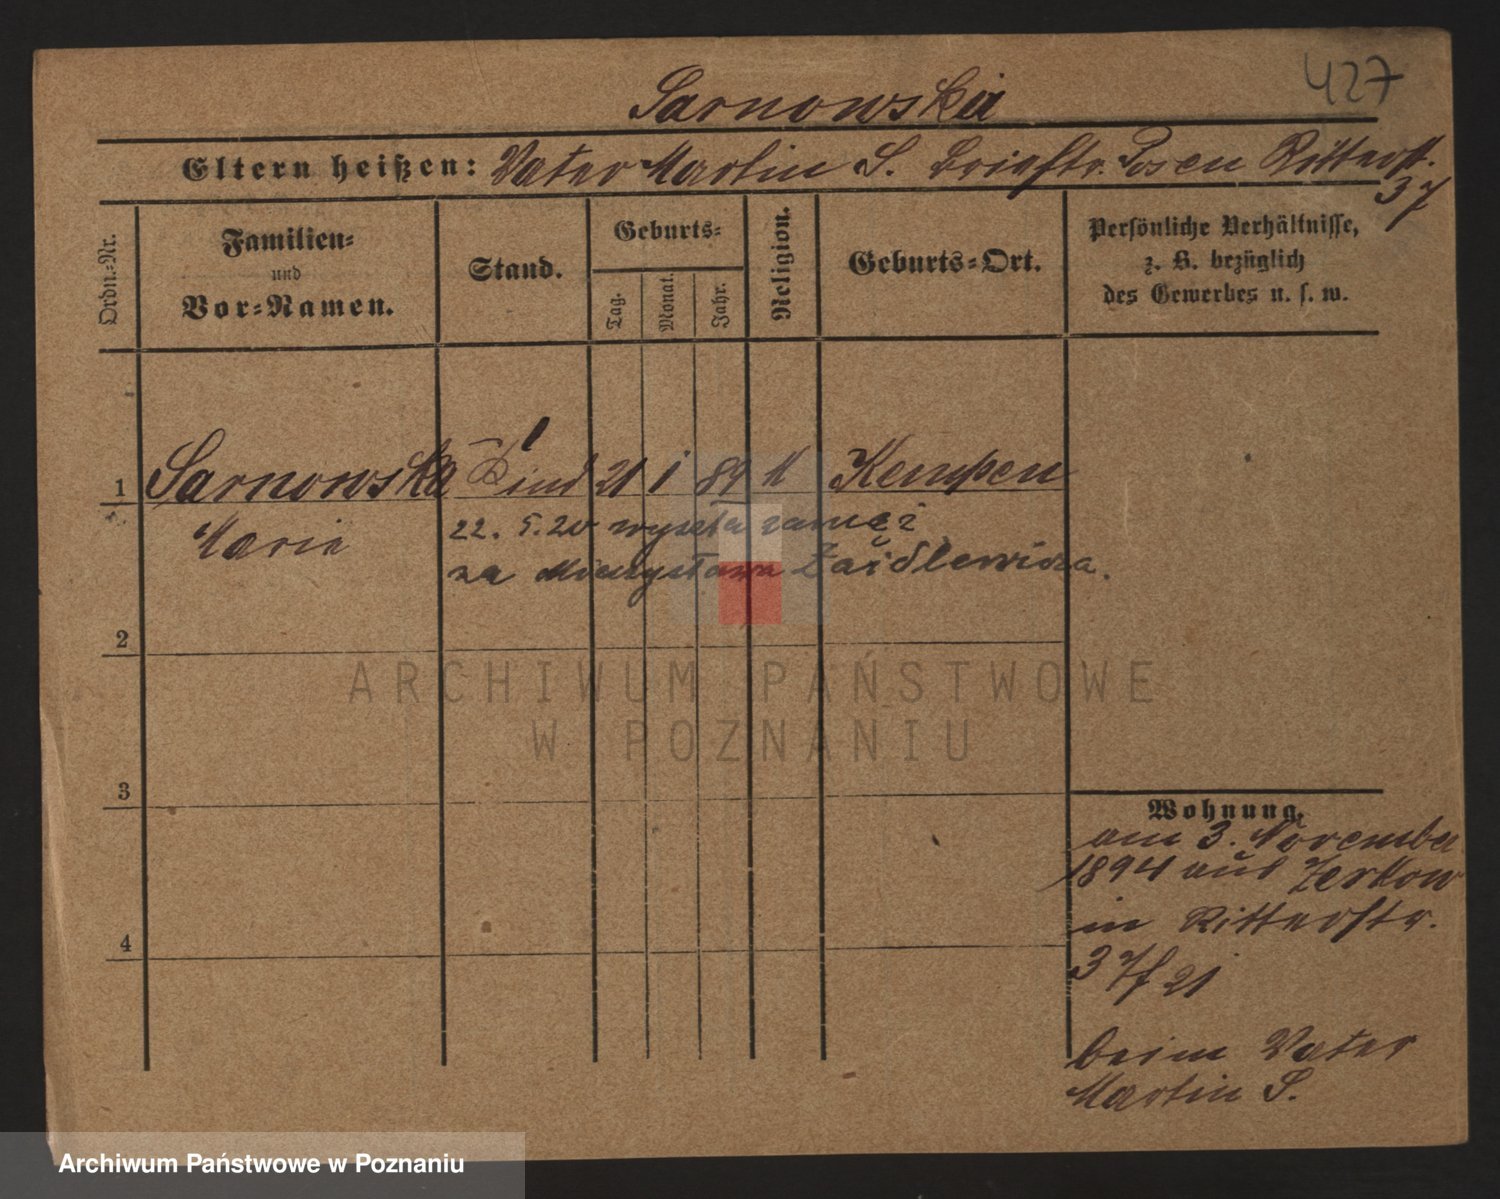 427
Sarnowska
Eltern heißen: Vater Martin S. Brieftr. Posen Ritterst.
37
Ordn.-Nr.
Familien-
und
Vor-Namen.
Stand.
Geburts-
Tag.
Monat.
Jahr.
Religion.
Geburts-Ort.
Persönliche Verhältnisse,
z. B. bezüglich
des Gewerbes u. s. w.
1 Sarnowska Kind 21 1 89 K Kempen
Marie
22. 5. 20 wyszła zamęż
za Mieczysława
2
ARCHIWUM PAŃSTWOWE
W POZNANIU
3
Wohnung.
am 3. November
1894 aus Zerkow
in Ritterstr.
4
37
beim Vater
Martin S.
Archiwum Państwowe w Poznaniu